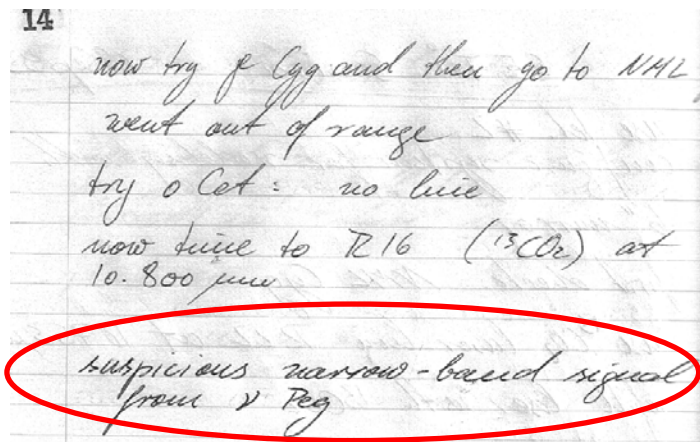 14
now try χ Cyg and then go to NML
went out of range
try o Cet: no line
now tune to R16 (¹³CO₂) at
10.800 μm
suspicious narrow-band signal
from ν Peg